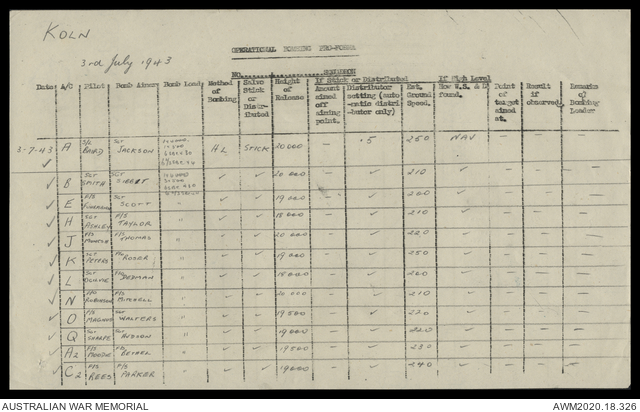 KOLN
3rd July 1943
OPERATIONAL BOMBING PRO-FORMA
NO. SQUADRON
Date A/C Pilot Bomb Aimer Bomb Load Method of Bombing Salvo Stick or Distributed Height of Release If Stick or Distributed Amount aimed off aiming point. Distributor setting (auto-matic distributer only) Est. Ground Speed. If High Level How W.S. & D found. Point of target aimed at. Result if observed. Remarks of Bombing Leader
3-7-43 A BAIRD SGT JACKSON HL STICK 20000 — .5 250 NAV — — —
✓ B SGT SMITH SGT ✓ ✓ 20000 — ✓ 210 ✓ — — —
✓ E F/S SGT SCOTT " ✓ ✓ 19000 — ✓ 200 ✓ — — —
✓ H SGT ASHLEY F/S TAYLOR " ✓ ✓ 18000 — ✓ 210 ✓ — — —
✓ J F/S F/S THOMAS " ✓ ✓ 20000 — ✓ 220 ✓ — — —
✓ K SGT PETERS ROSER " ✓ ✓ 19000 — ✓ 250 ✓ — — —
✓ L SGT DEDMAN " ✓ ✓ 18000 — ✓ 200 ✓ — — —
✓ N ROBINSON F/S " ✓ ✓ 20000 — ✓ 210 ✓ — — —
✓ O F/S SGT WALTERS " ✓ ✓ 19500 — ✓ 220 ✓ — — —
✓ Q SGT SHARPE SGT HUDSON " ✓ ✓ 19000 — ✓ 220 ✓ — — —
✓ A2 F/S " ✓ ✓ 19500 — ✓ 230 ✓ — — —
✓ C2 F/S REES F/S PARKER " ✓ ✓ 19000 — ✓ 240 ✓ — — —
AUSTRALIAN WAR MEMORIAL AWM2020.18.326